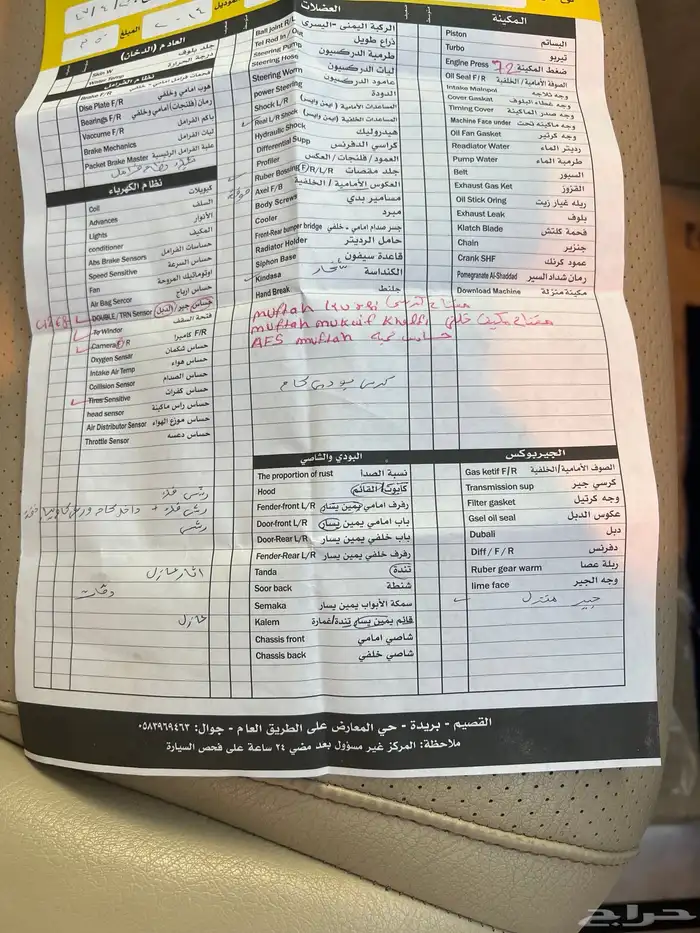 الموديل ٢٠١٤
المبلغ
العادم (الدخان)
Skin W جلد بلوف
Water Temp درجة الحرارة
نظام الفرامل
Brake F/R فحمات فرامل أمامي - خلفي
Disc Plate F/R هوب أمامي وخلفي
Bearings F/R رمان (فلنجات) أمامي وخلفي
Vaccume F/R باكم الفرامل
Brake Mechanics ليات الفرامل
Packet Brake Master علبة الفرامل الرئيسية
نظام الكهرباء
Coil كويلات
Advances السلف
Lights الأنوار
conditioner المكيف
Abs Brake Sensors حساسات الفرامل
Speed Sensitive حساس السرعة
Fan اوتوماتيك المروحة
Air Bag Sercor حساس ارباح
DOUBLE/TRN Sensor حساس جير/الدبل
Tor Windor فتحة السقف
Camera F/R كاميرا F/R
Oxygen Sensar حساس شكمان
Intake Air Temp حساس هواء
Collision Sensor حساس الصدام
Tires Sensitive حساس كفرات
head sensor حساس راس ماكينة
Air Distributor Sensor حساس موزع الهواء
Throttle Sensor حساس دعسه
رش
اثار عازل
عازل
العضلات
Ball joint R/L الركبة اليمنى - اليسرى
Tel Rod In / Out ذراع طويل
Steering Pump طرمبة الدركسيون
Steering Hose ليات الدركسيون
Steering Worm عامود الدركسيون
power Steering الدودة
Shock L/R المساعدات الأمامية (ايمن وايسر)
Real L/R Shock المساعدات الخلفية (ايمن وايسر)
Hydraulic Shock هيدروليك
Differential Supp كراسي الدفرنس
Profiler العمود / فلنجات / العكس
Ruber Bossing (F/R/L/R) جلد مقصات
Axel F/B العكوس الأمامية / الخلفية
Body Screws مسامير بدي
Cooler مبرد
Front-Rear bumper bridge جسر صدام امامي - خلفي
Radiator Holder حامل الرديتر
Siphon Base قاعدة سيفون
Kindasa الكنداسة
Hand Brake جلنط
المكينة
Piston البساتم
Turbo تيربو
Engine Press 72 ضغط المكينة
Oil Seal F/R الصوفة الأمامية / الخلفية
Intake Mainpol وجه ثلاجه
Cover Gaskat وجه غطاء البلوف
Timing Cover وجه صدر الماكينة
Machine Face under وجه ماكينه تحت
Oil Fan Gasket وجه كرتير
Readiator Water رديتر الماء
Pump Water طرمبة الماء
Belt السيور
Exhaust Gas Ket القزوز
Oil Stick Oring ربله غيار زيت
Exhaust Leak بلوف
Klatch Blade فحمة كلتش
Chain جنزير
Crank SHF عمود كرنك
Pomegranate Al-Shadded رمان شداد السير
Download Machine مكينة منزلة
muftah kursi مفتاح كرسي
muftah mukeif khalfi مفتاح مكيف خلفي
AFS muftah
البودي والشاصي
The proportion of rust نسبة الصدأ
Hood كابوت / القائم
Fender-front L/R رفرف امامي يمين يسار
Door-front L/R باب امامي يمين يسار
Door-Rear L/R باب خلفي يمين يسار
Fender-Rear L/R رفرف خلفي يمين يسار
Tanda تندة
Soor back شنطة
Semaka سمكة الأبواب يمين يسار
Kalem قائم يمين يسار تندة/غمارة
Chassis front شاصي امامي
Chassis back شاصي خلفي
الجيربوكس
Gas ketif F/R الصوف الأمامية/الخلفية
Transmission sup كرسي جير
Filter gasket وجه كرتيل
Gsel oil seal عكوس الدبل
Dubali دبل
Diff / F / R دفرنس
Ruber gear warm ربلة عصا
lime face وجه الجير
جير منزل
القصيم - بريدة - حي المعارض على الطريق العام - جوال: ٠٥٨٣٩٦٩٤٦٣
ملاحظة: المركز غير مسؤول بعد مضي ٢٤ ساعة على فحص السيارة
حراج